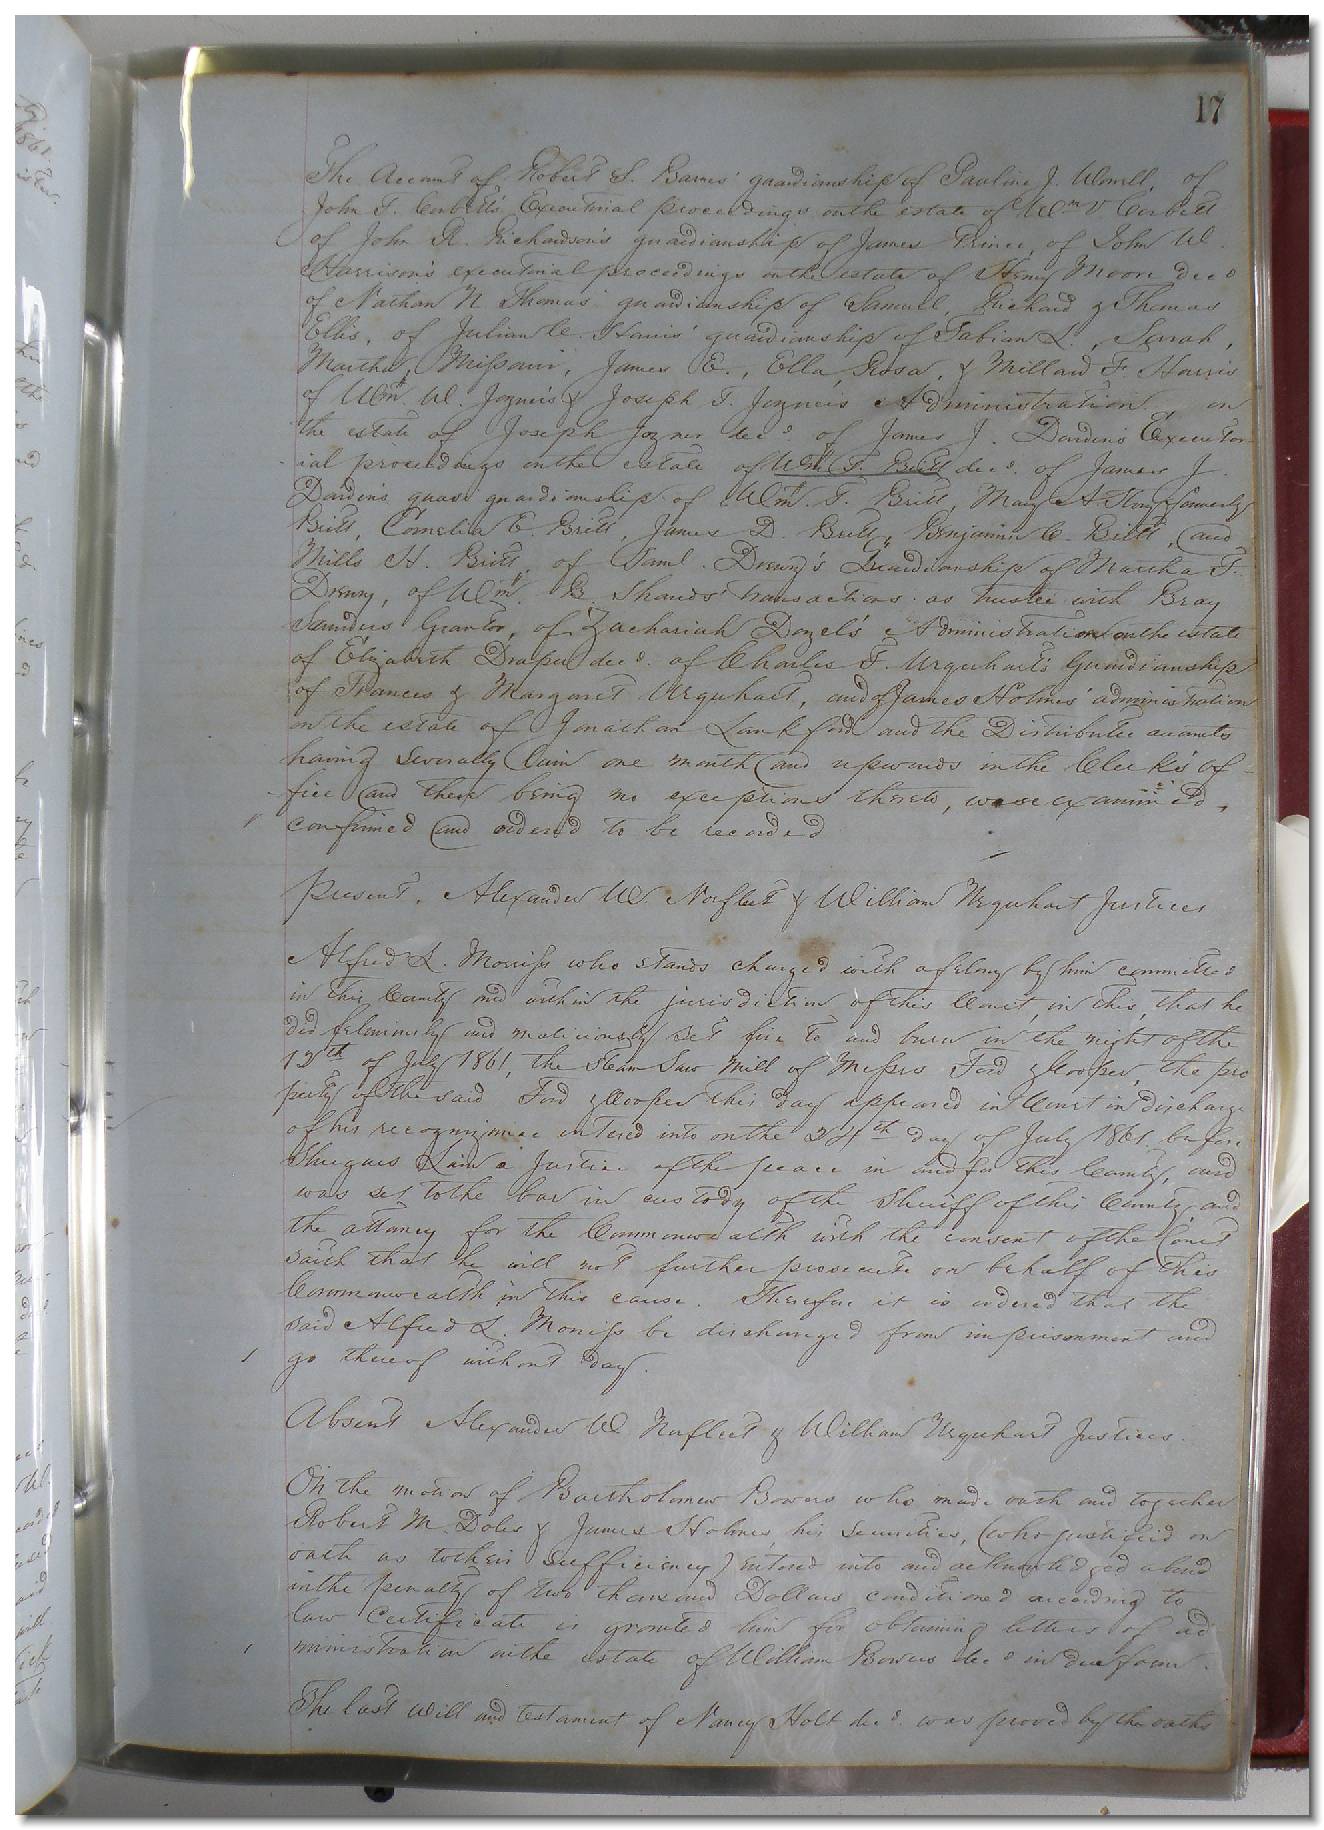 17
The Account of Robert S. Barnes' guardianship of Pauline J. Worrell, of
John T. Corbett's Executrial proceedings on the estate of Wm V Corbett
of John R. Richardson's guardianship of James Prince, of John W.
Harrison's executrial proceedings on the estate of Henry Moore decd
of Nathan N Thomas' guardianship of Samuel, Richard & Thomas
Ellis, of Julian C. Harris' guardianship of Fabian L., Sarah,
Martha, Missouri, James E., Ella, Rosa, & Millard F. Harris
of Wm. W. Joyner's & Joseph T. Joyner's Administration on
the estate of Joseph Joyner decd. of James J. Darden's Executor-
ial proceedings on the estate of Wm. T. Britt decd. of James J.
Darden's quasi guardianship of Wm. T. Britt, Mary A formerly
Britt, Cornelia E. Britt, James D. Britt, Benjamin C. Britt, and
Mills H. Britt, of Saml. Drewry's Guardianship of Martha F.
Drewry, of Wm. B. Shands' transactions as trustee with Bray
Saunders Grantor, of Zachariah Doyel's Administration on the estate
of Elizabeth Draper decd. of Charles F. Urquhart's Guardianship
of Frances & Margaret Urquhart, and of James Holmes' administration
on the estate of Jonathan Lankford and the Distributee accounts
having severally lain one month and upwards in the Clerk's of-
fice and there being no exceptions thereto, were examined,
confirmed and ordered to be recorded
Present, Alexander W. Norfleet & William Urquhart Justices
Alfred L. Morriss who stands charged with a felony by him committed
in this County and within the jurisdiction of this Court, in this, that he
did feloniously and maliciously set fire to and burn in the night of the
12th of July 1861, the Steam Saw Mill of Messrs Ford & Cooper, the pro
perty of the said Ford & Cooper this day appeared in Court in discharge
of his recognizance entered into on the 24th day of July 1861 before
Lain a Justice of the peace in and for this County, and
was set to the bar in custody of the Sheriff of this County and
the attorney for the Commonwealth with the consent of the Court
saith that he will not further prosecute on behalf of this
Commonwealth in this cause. Therefore it is ordered that the
said Alfred L. Morriss be discharged from imprisonment and
go thereof without day.
Absent Alexander W. Norfleet & William Urquhart Justices.
On the motion of Bartholomew Bowers who made oath and together
Robert M. Doles & James Holmes, his securities, (who justified on
oath as to their sufficiency) entered into and acknowledged a bond
in the penalty of two thousand Dollars conditioned according to
law Certificate is granted him for obtaining letters of ad
ministration on the estate of William Bowers decd in due form.
The last will and testament of Nancy Holt decd. was proved by the oaths